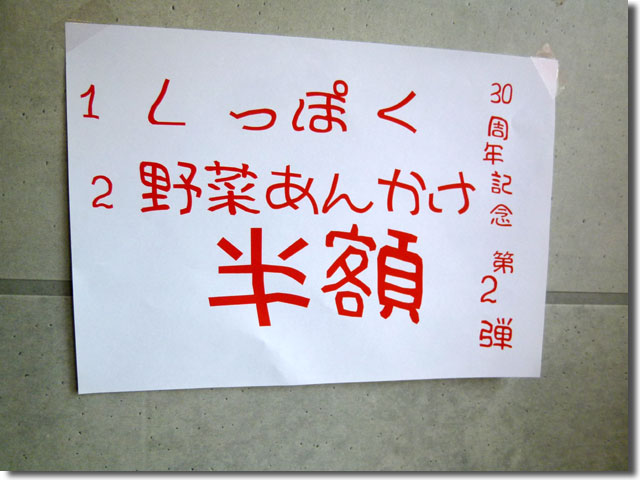 30周年記念 第2弾
1 しっぽく
2 野菜あんかけ
半額